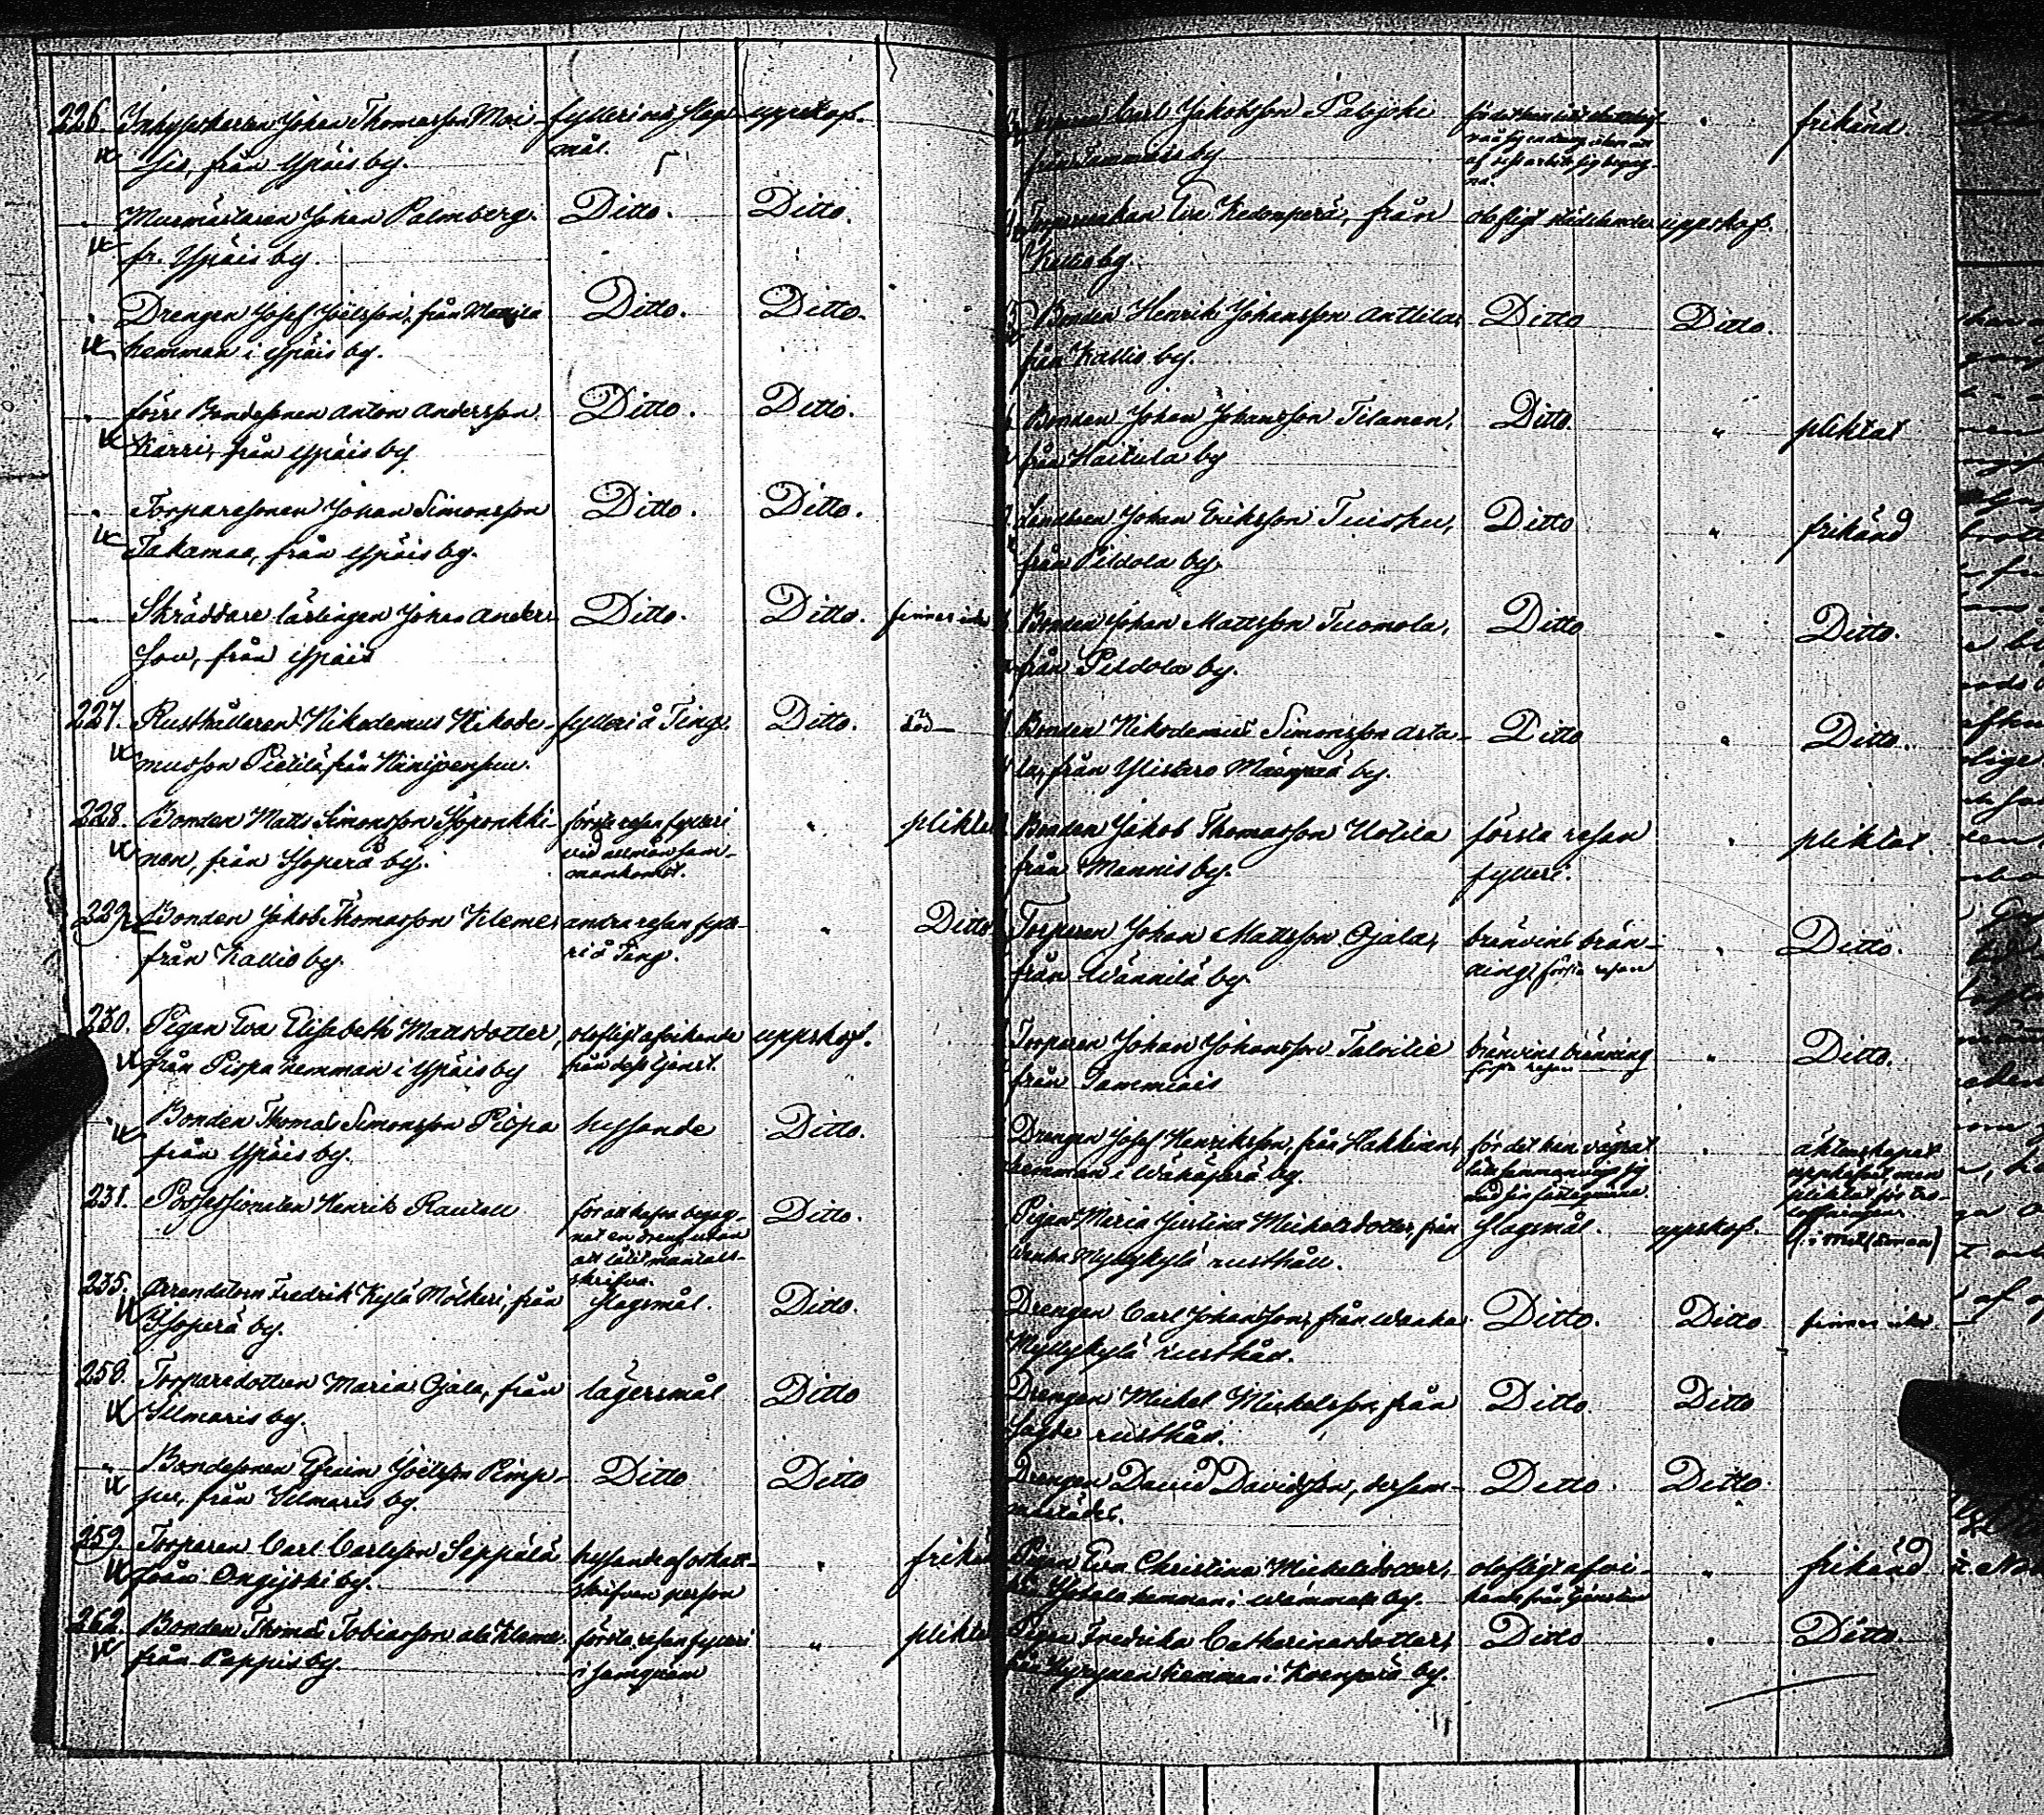 226. Inhysikaren Johan Thomasson Moi- fylleri och slags- uppskof.
sio, från Ypäis by. mål.
" Murmästaren Johan Palmberg Ditto. Ditto.
fr. Ypäis by.
" Drengen Josef Joëlsson, från Ditto. Ditto.
hemman i Ypäis by.
" förre Bondesonen Anton Andersson Ditto. Ditto.
Karri, från Ypäis by
" Torparesonen Johan Simonsson Ditto. Ditto.
Takamaa, från Ypäis by.
" Skräddare lärlingen Johan Anders- Ditto. Ditto. finnes icke
son, från Ypäis
227. Rusthållaren Nikodemus Nikode- fylleri å Ting. Ditto. död
musson Pietilä från
228. Bonden Matts Simonsson Isoponkki- första resan fylleri " pliktat
nen, från Isoperä by. vid allmän sam-
mankomst.
229. Bonden Jakob Thomasson Kleme, andra resan fylle- " Ditto
från Kallio by. ri å Ting.
230. Pigan Eva Elisabeth Mattsdotter, olofligt afvikande uppskof.
från Pispa hemman i Ypäis by från dess tjenst.
" Bonden Thomas Simonsson Pispa hysande Ditto.
från Ypäis by.
231. Possessionaten Henrik Rautell för att hafva begag- Ditto.
nat en dreng utan
att låtit mantals-
skrifva.
235. Arrendatorn Fredrik Kylä Mölkeri, från slagsmål. Ditto.
Isoperä by.
258. Torparedottren Maria Ojala, från lägersmål Ditto
by.
" Bondesonen Efraim Joëlsson Pimp- Ditto Ditto
pu, från by.
259. Torparen Carl Carlsson Seppälä hysande af oskatt- " frikänd
från by. skrifven person
262. Bonden Thomas Tobiasson ala Kleme första resan fylleri " pliktat
från Peppis by.
Carl Jakobsson Palojoki " frikänd.
från Tammiais by
Eva Kedonperä, från olofligt städslande uppskof.
Kallio by.
Bonden Henrik Johansson Anttila, Ditto Ditto.
från Kallio by.
Bonden Johan Johansson Tilanen, Ditto. " pliktat
från Haitula by
Johan Eriksson Tuisku, Ditto " frikänd
från Peldola by.
Bonden Johan Mattsson Tuomola, Ditto " Ditto.
från Peldola by.
Bonden Nikodemus Simonsson Arta- Ditto " Ditto.
la, från Ylistaro Mäenpää by.
Bonden Jakob Thomasson Uotila första resan " pliktat.
från Mannis by. fylleri.
Torparen Johan Mattsson Ojala, bränvins brän- " Ditto.
från Wännilä by. ning, första resan
Torparen Johan Johansson Talvitie bränvins bränning " Ditto.
från Tammiais första resan
Drengen Josef Henriksson, från Hakkinen för det han vägrat " äktenskapet
hemman i Wähäperä by. upplöstes, men
med sin fästeqvinna. pliktat för
Pigan Maria Justina Michelsdotter, från slagsmål. uppskof.
Wanha Myllykylä rusthåll.
Drengen Carl Johansson, från Wanha Ditto. Ditto finnes icke
Myllykylä rusthåll.
Drengen Michel Michelsson, från Ditto Ditto
rusthåll.
Drengen David Davidsson, dersam- Ditto. Ditto.
mastädes.
Pigan Eva Christina Michelsdotter, olofligt afvi- " frikänd
hemman i Wammala by. kande från tjensten
Pigan Fredrika Catharinasdotter, Ditto " Ditto
hemman i Koenperä by.